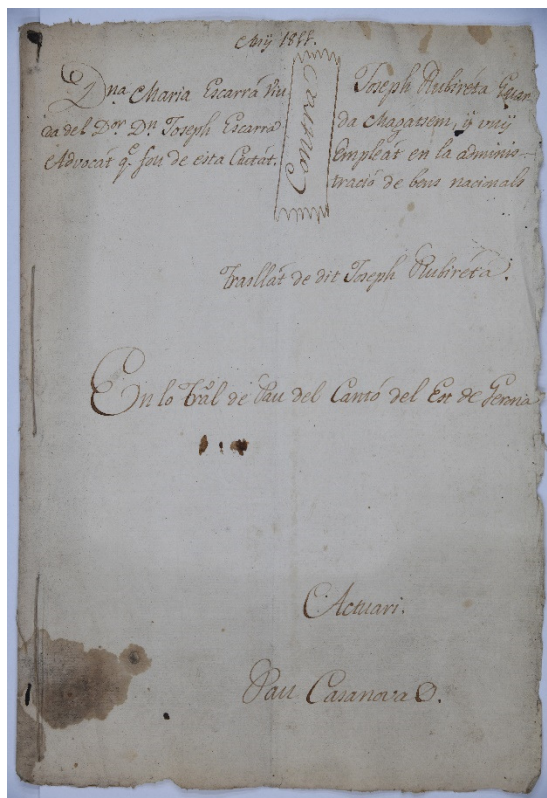 Añy 1811.
Dna Maria Escarrá Viu
da del Dor. Dn Joseph Escarra
Advocát q.e fou de esta Ciutát.
Contra
Joseph Rubiréta Guar
da Magatsem, y vuy
Empleát en la adminis-
tració de bens nacionals
Trasllát de dit Joseph Rubiréta.
En lo Tral de Pau del Cantó del Est de Gerona
Actuari.
Pau Casanova